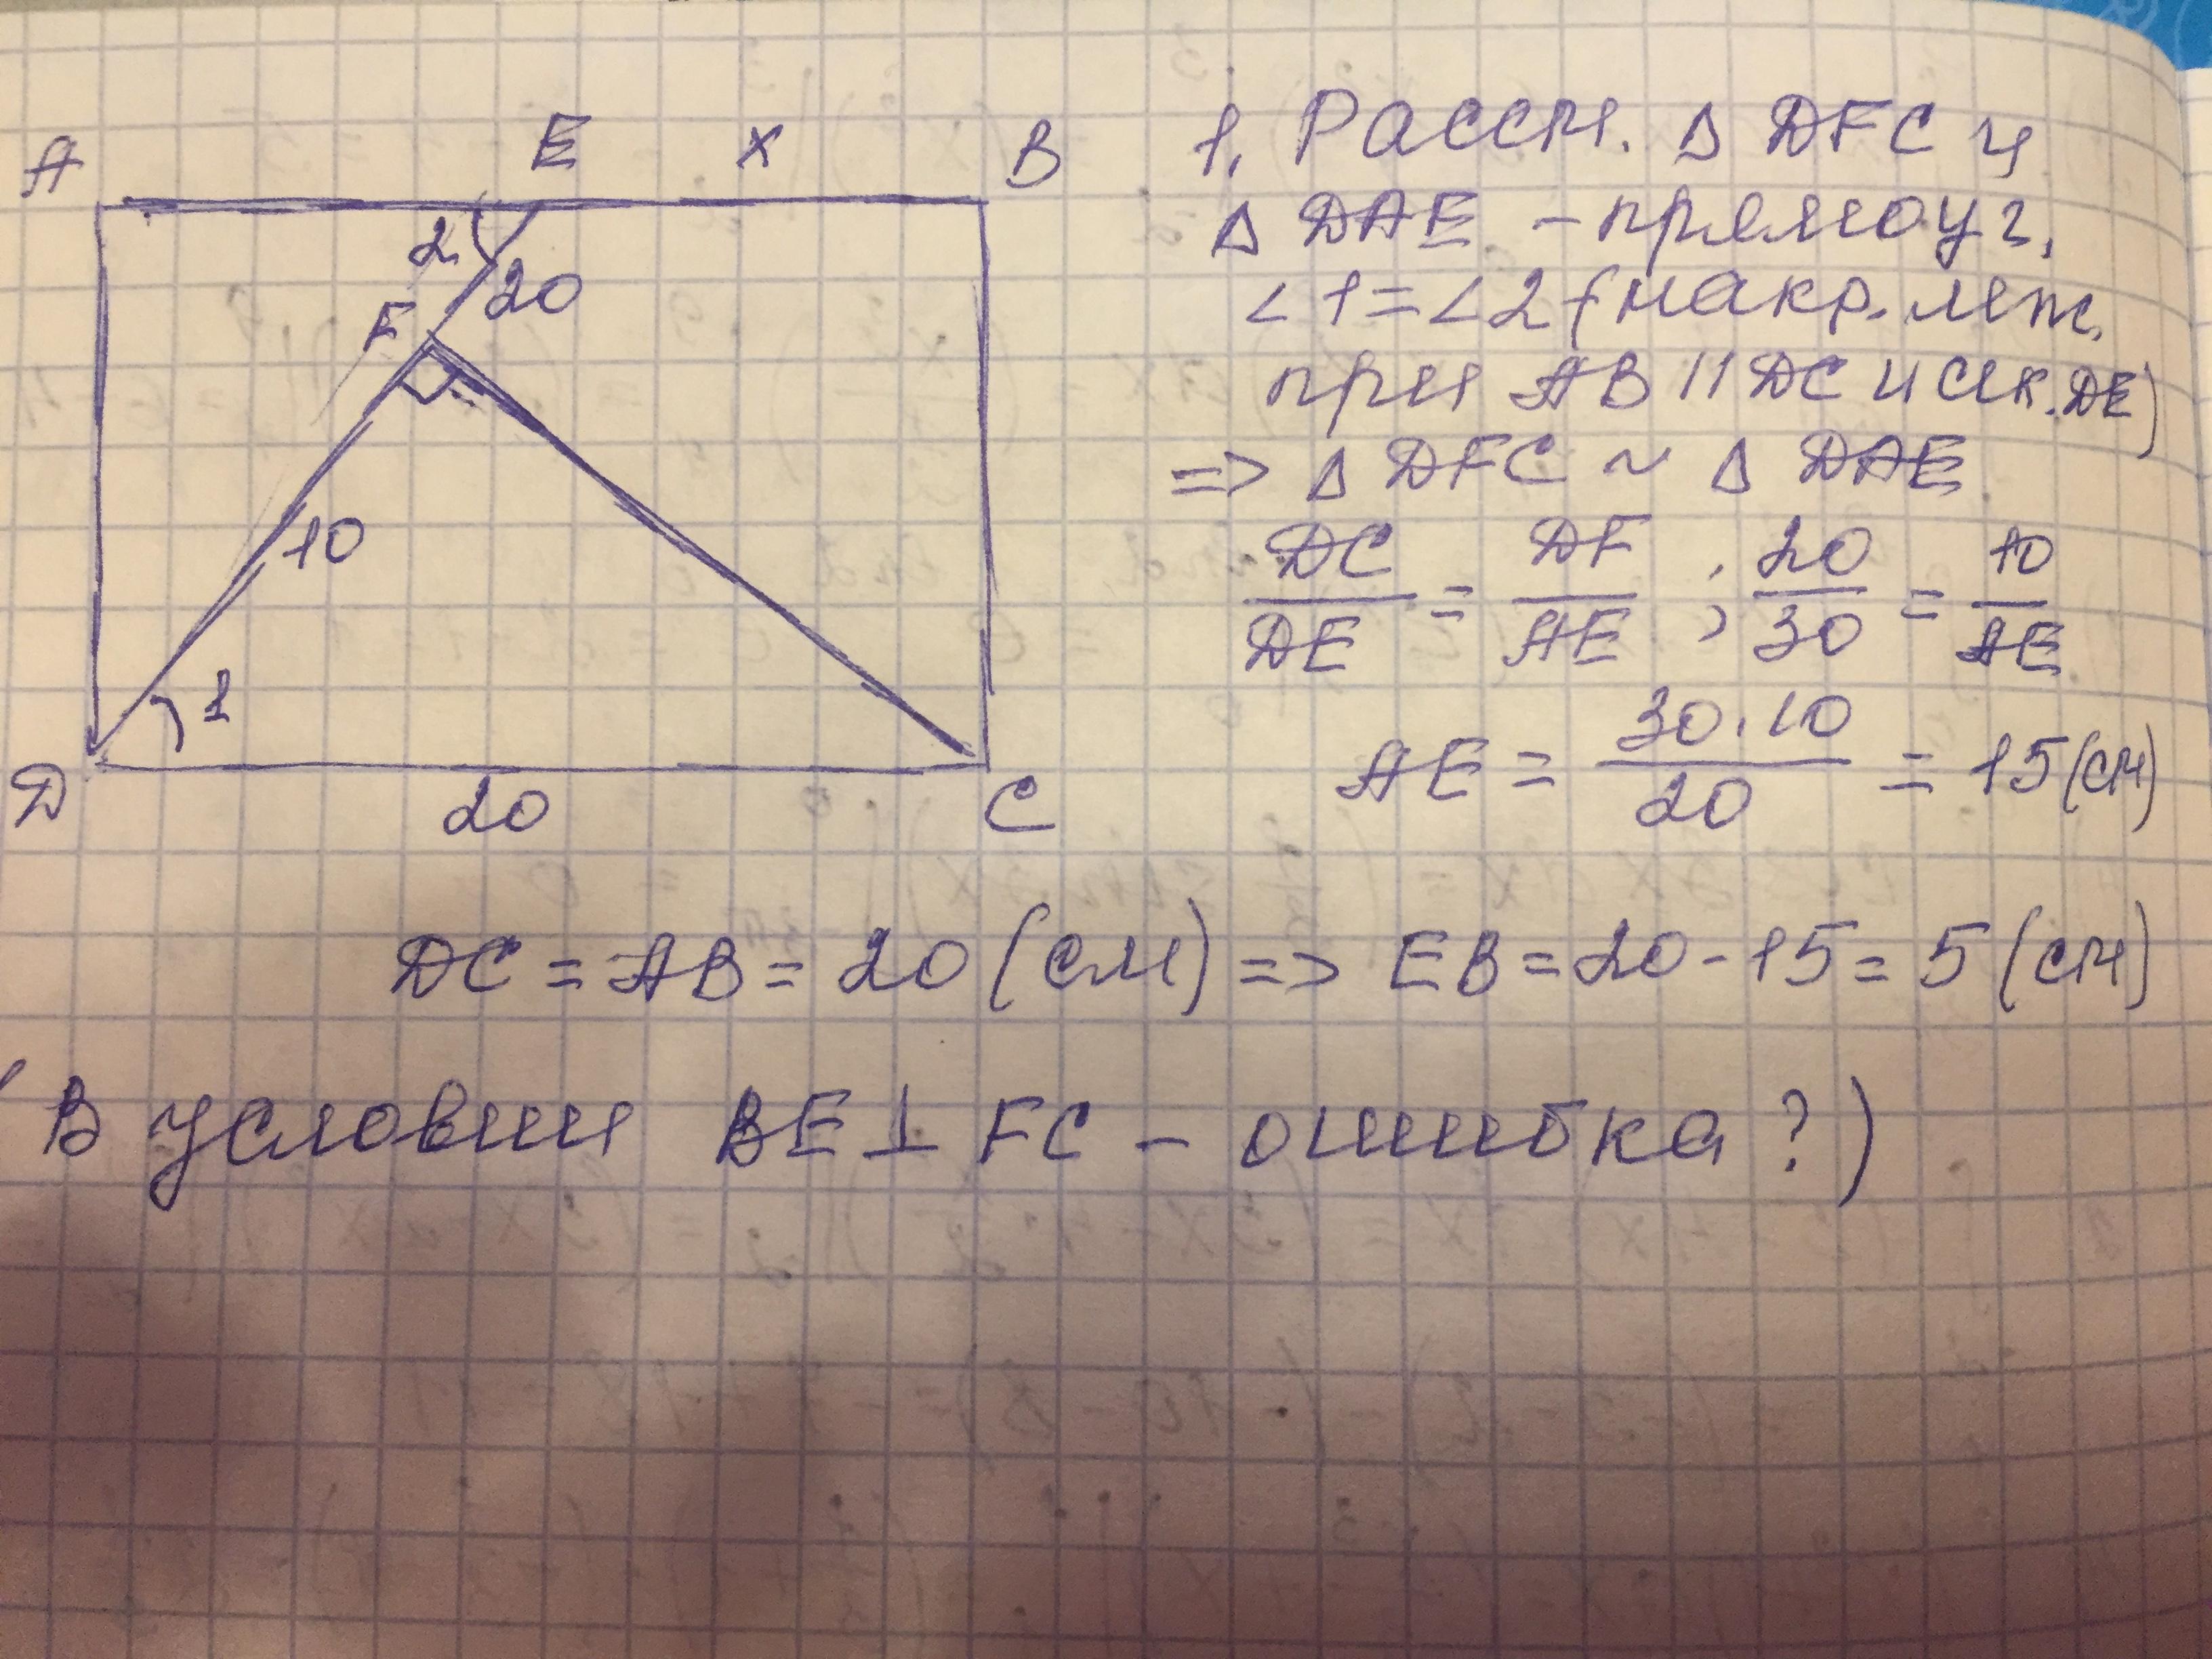 A E x B
2
20
F
10
1
D 20 C
1. Рассм. Δ DFC и
Δ DAE – прямоуг.
∠1=∠2 (накр. леж.
при AB || DC и сек. DE)
=> Δ DFC ~ Δ DAE
DC/DE = DF/AE ; 20/30 = 10/AE
AE = 30·10/20 = 15 (см)
DC = AB = 20 (см) => EB = 20 - 15 = 5 (см)
(В условии BE ⊥ FC – ошибка?)